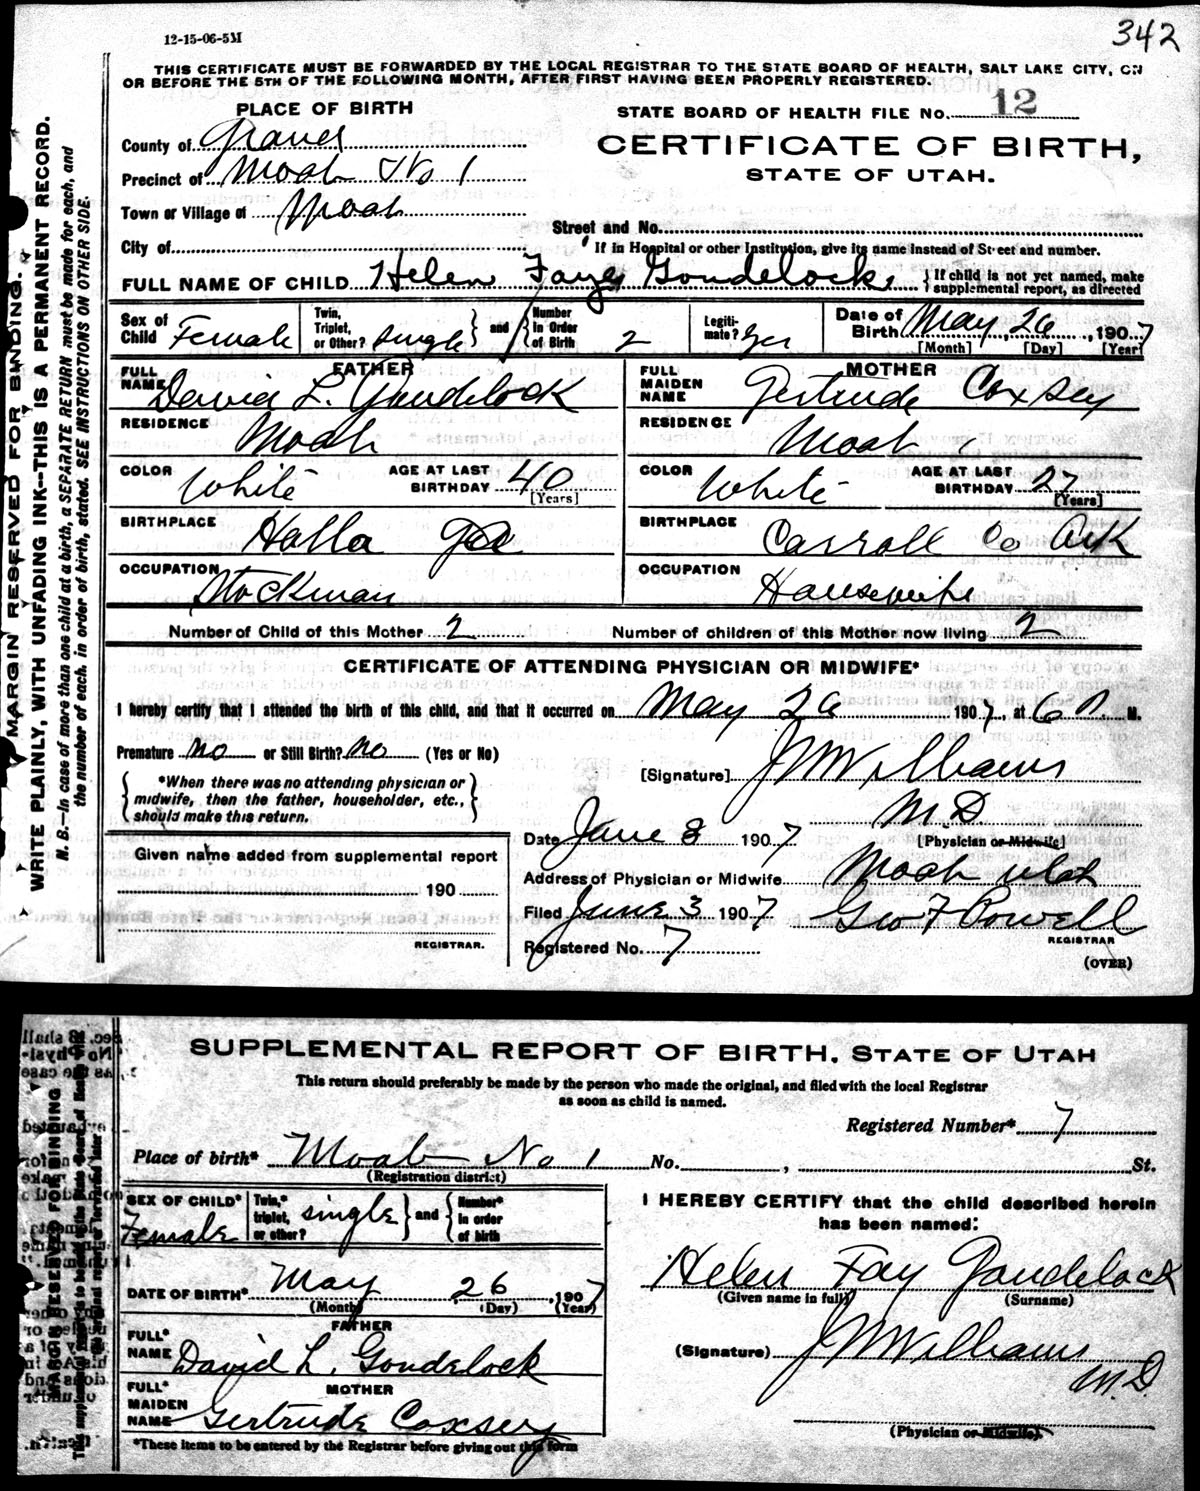 12-15-06-5M
342
THIS CERTIFICATE MUST BE FORWARDED BY THE LOCAL REGISTRAR TO THE STATE BOARD OF HEALTH, SALT LAKE CITY, ON
OR BEFORE THE 5TH OF THE FOLLOWING MONTH, AFTER FIRST HAVING BEEN PROPERLY REGISTERED.
PLACE OF BIRTH
STATE BOARD OF HEALTH FILE No. 12
County of Grand
CERTIFICATE OF BIRTH,
STATE OF UTAH.
Precinct of Moab No 1
Town or Village of Moab
Street and No.
City of
If in Hospital or other Institution, give its name instead of Street and number.
FULL NAME OF CHILD Helen Faye Goudelock
If child is not yet named, make supplemental report, as directed
Sex of Child Female
Twin, Triplet, or Other? single and Number in Order of Birth 2
Legitimate? yes
Date of Birth May, 26, 1907
[Month] [Day] [Year]
FATHER
FULL NAME David L. Goudelock
RESIDENCE Moab
COLOR White AGE AT LAST BIRTHDAY 40 [Years]
BIRTHPLACE Halla
OCCUPATION Stockman
MOTHER
FULL MAIDEN NAME Gertrude Coxsey
RESIDENCE Moab
COLOR White AGE AT LAST BIRTHDAY 27 [Years]
BIRTHPLACE Carroll Co Ark
OCCUPATION Housewife
Number of Child of this Mother 2 Number of children of this Mother now living 2
CERTIFICATE OF ATTENDING PHYSICIAN OR MIDWIFE*
I hereby certify that I attended the birth of this child, and that it occurred on May 26 1907, at 6 A. M.
Premature no or Still Birth? no (Yes or No)
[Signature] J W Williams
M D
[Physician or Midwife]
*When there was no attending physician or
midwife, then the father, householder, etc.,
should make this return.
Date June 3 1907
Given name added from supplemental report
190
REGISTRAR.
Address of Physician or Midwife Moab Utah
Filed June 3 1907 Geo F Powell
REGISTRAR
Registered No. 7
(OVER)
MARGIN RESERVED FOR BINDING.
WRITE PLAINLY, WITH UNFADING INK--THIS IS A PERMANENT RECORD.
N. B.—In case of more than one child at a birth, a SEPARATE RETURN must be made for each, and
the number of each, in order of birth, stated. SEE INSTRUCTIONS ON OTHER SIDE.
SUPPLEMENTAL REPORT OF BIRTH, STATE OF UTAH
This return should preferably be made by the person who made the original, and filed with the local Registrar
as soon as child is named.
Registered Number* 7
Place of birth* Moab No 1 No. , St.
(Registration district)
SEX OF CHILD* Female
Twin,* triplet, or other? single and Number* in order of birth
DATE OF BIRTH* May 26 1907
(Month) (Day) (Year)
FATHER
FULL* NAME David L. Goudelock
MOTHER
FULL* MAIDEN NAME Gertrude Coxsey
*These items to be entered by the Registrar before giving out this form
I HEREBY CERTIFY that the child described herein
has been named:
Helen Fay Goudelock
(Given name in full) (Surname)
(Signature) J W Williams
M.D.
(Physician or Midwife).
MARGIN RESERVED FOR BINDING